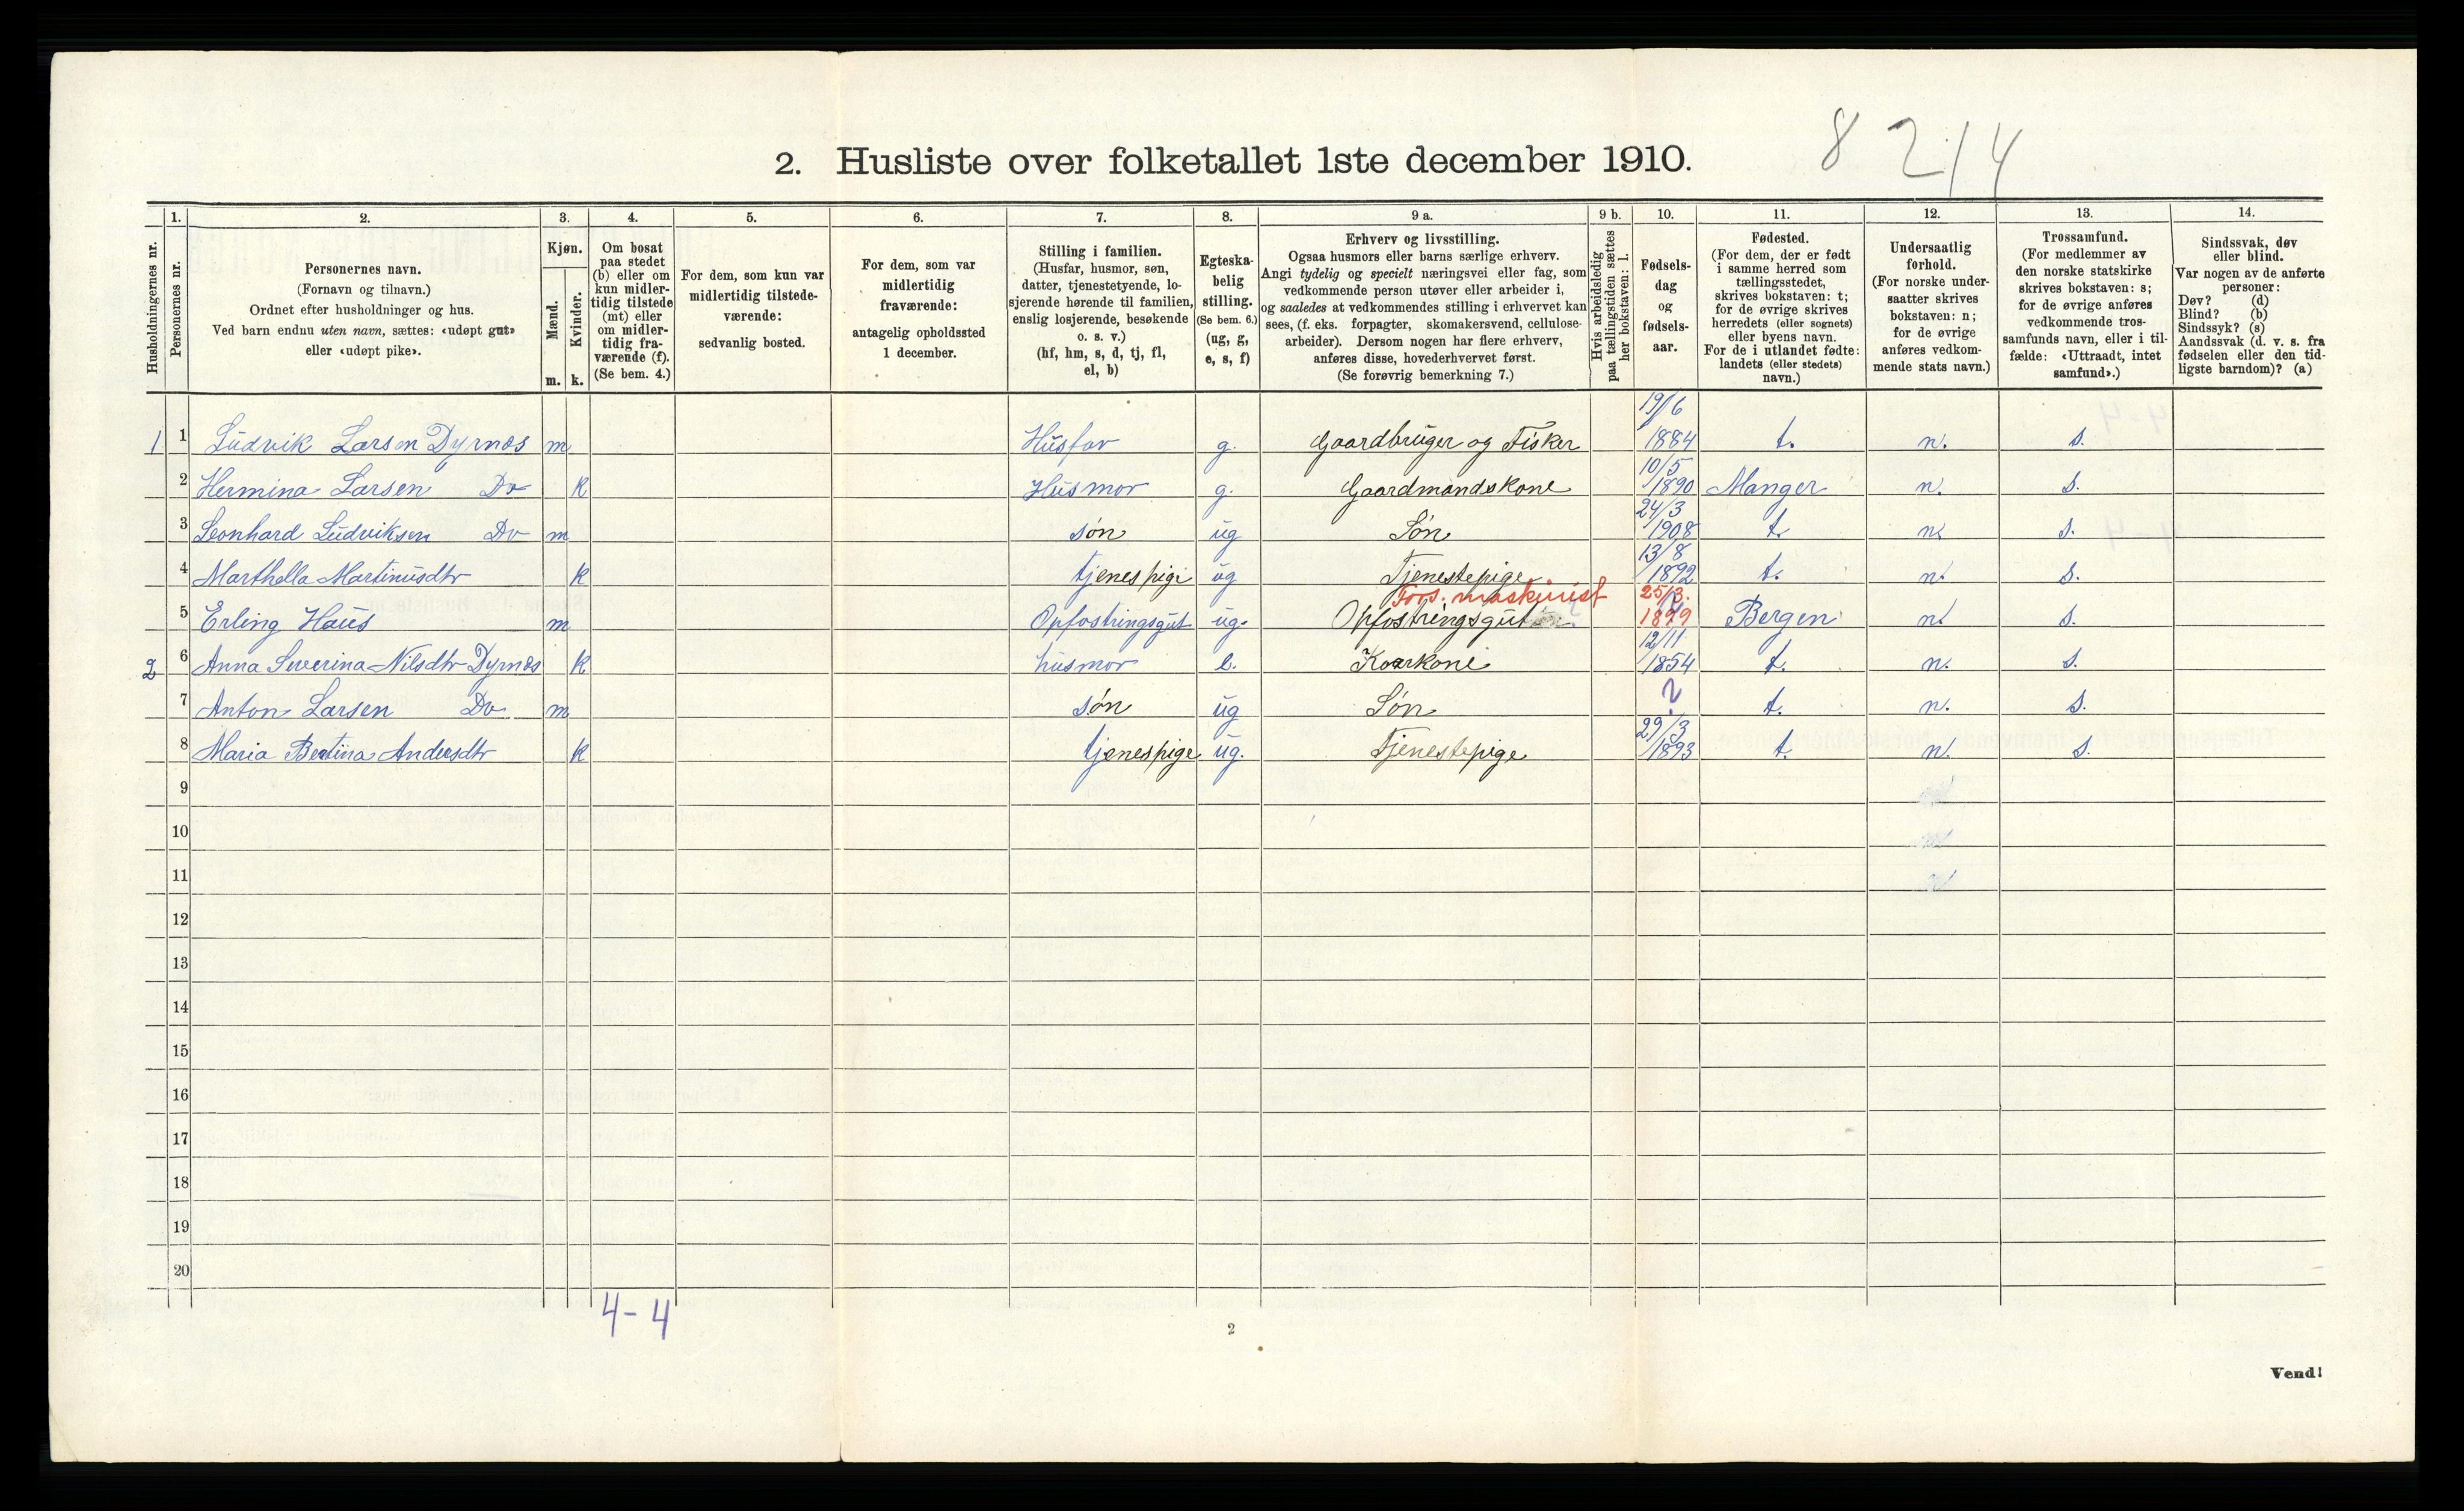 8 214
2. Husliste over folketallet 1ste december 1910.
1. 2. 3. 4. 5. 6. 7. 8. 9 a. 9 b. 10. 11. 12. 13. 14.
Husholdningernes nr.
Personernes nr.
Personernes navn.
(Fornavn og tilnavn.)
Ordnet efter husholdninger og hus.
Ved barn endnu uten navn, sættes: «udøpt gut»
eller «udøpt pike».
Kjøn.
Mænd.
Kvinder.
m. k.
Om bosat
paa stedet
(b) eller om
kun midler-
tidig tilstede
(mt) eller
om midler-
tidig fra-
værende (f).
(Se bem. 4.)
For dem, som kun var
midlertidig tilstede-
værende:
sedvanlig bosted.
For dem, som var
midlertidig
fraværende:
antagelig opholdssted
1 december.
Stilling i familien.
(Husfar, husmor, søn,
datter, tjenestetyende, lo-
sjerende hørende til familien,
enslig losjerende, besøkende
o. s. v.)
(hf, hm, s, d, tj, fl,
el, b)
Egteska-
belig
stilling.
(Se bem. 6.)
(ug, g,
e, s, f)
Erhverv og livsstilling.
Ogsaa husmors eller barns særlige erhverv.
Angi tydelig og specielt næringsvei eller fag, som
vedkommende person utøver eller arbeider i,
og saaledes at vedkommendes stilling i erhvervet kan
sees, (f. eks. forpagter, skomakersvend, cellulose-
arbeider). Dersom nogen har flere erhverv,
anføres disse, hovederhvervet først.
(Se forøvrig bemerkning 7.)
Hvis arbeidsledig
paa tællingstiden sættes
her bokstaven: l.
Fødsels-
dag
og
fødsels-
aar.
Fødested.
(For dem, der er født
i samme herred som
tællingsstedet,
skrives bokstaven: t;
for de øvrige skrives
herredets (eller sognets)
eller byens navn.
For de i utlandet fødte:
landets (eller stedets)
navn.)
Undersaatlig
forhold.
(For norske under-
saatter skrives
bokstaven: n;
for de øvrige
anføres vedkom-
mende stats navn.)
Trossamfund.
(For medlemmer av
den norske statskirke
skrives bokstaven: s;
for de øvrige anføres
vedkommende tros-
samfunds navn, eller i til-
fælde: «Uttraadt, intet
samfund».)
Sindssvak, døv
eller blind.
Var nogen av de anførte
personer:
Døv? (d)
Blind? (b)
Sindssyk? (s)
Aandssvak (d. v. s. fra
fødselen eller den tid-
ligste barndom)? (a)
1 1 Ludvik Larsen Dyrnæs m Husfar g. Gaardbruger og Fisker 19/6 1884 t. n. s.
2 Hermina Larsen Do k Husmor g. Gaardmandskone 10/5 1890 Manger n. s.
3 Leonhard Ludviksen Do m søn ug Søn 24/3 1908 t. n. s.
4 Marthella Martinusdtr k tjenespigi ug Tjenestepige 13/8 1892 t. n. s.
Fors. maskinist
5 Erling Haus m Opfostringsgut ug. Opfostringsgut 25/3. 1899 Bergen n. s.
2 6 Anna Severina Nilsdtr Dyrnæs k husmor e. Kaarkone 12/11 1854 t. n. s.
7 Anton Larsen Do m søn ug Søn ? t. n. s.
8 Maria Bertina Andersdtr k tjenespige ug. Tjenestepige 29/3 1893 t. n. s.
9
10
11
12
13
14
15
16
17
18
19
20
4-4
2
Vend!